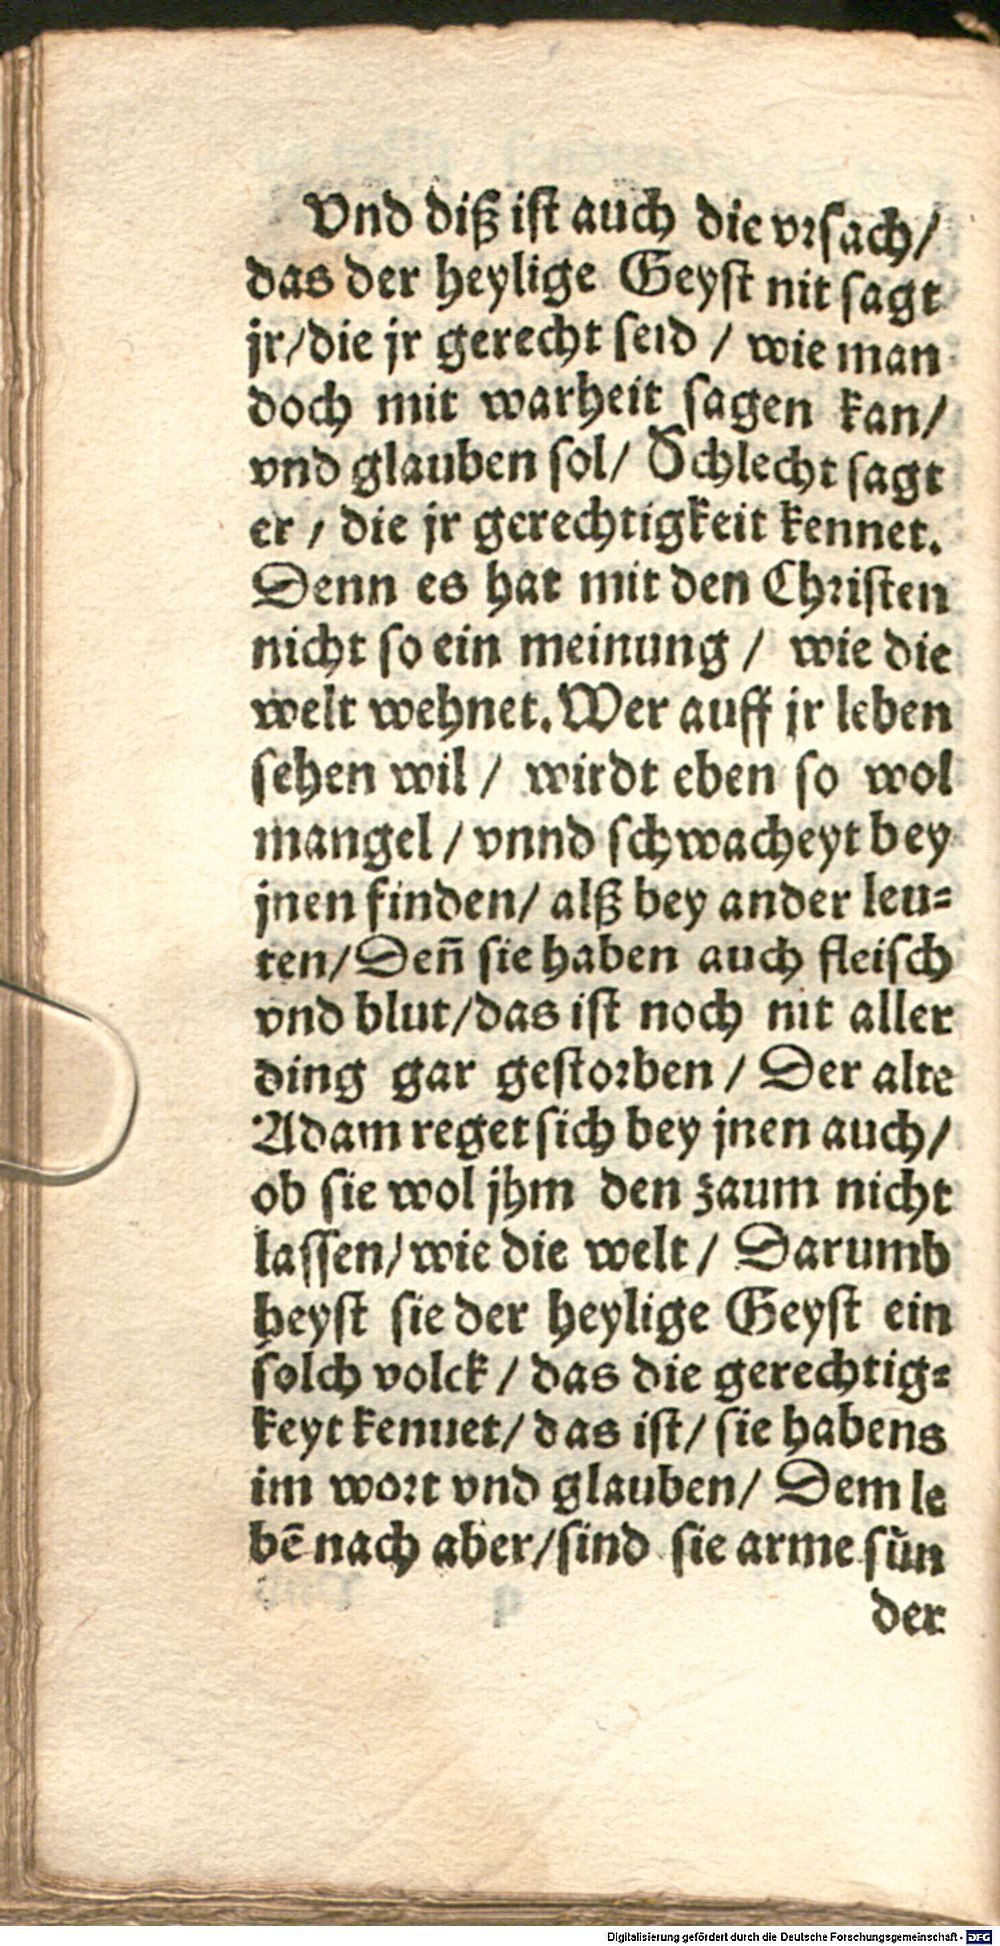 Vnd diß iſt auch die vꝛſach/
das der heylige Geyſt nit ſagt
jr/die jr gerecht ſeid / wie man
doch mit warheit ſagen kan/
vnd glauben ſol/ Schlecht ſagt
er / die jr gerechtigkeit kennet.
Denn es hat mit den Chꝛiſten
nicht ſo ein meinung / wie die
welt wehnet. Wer auff jr leben
ſehen wil / wirdt eben ſo wol
mangel / vnnd ſchwacheyt bey
jnen finden/ alß bey ander leu⸗
ten/Deñ ſie haben auch fleiſch
vnd blut/das iſt noch nit aller
ding gar geſtoꝛben / Der alte
Adam reget ſich bey jnen auch/
ob ſie wol jhm den zaum nicht
laſſen/wie die welt / Darumb
heyſt ſie der heylige Geyſt ein
ſolch volck / das die gerechtig⸗
keyt kennet/ das iſt/ ſie habens
im woꝛt vnd glauben/ Dem le
bē nach aber/ſind ſie arme ſün
der
Digitalisierung gefördert durch die Deutsche Forschungsgemeinschaft - DFG